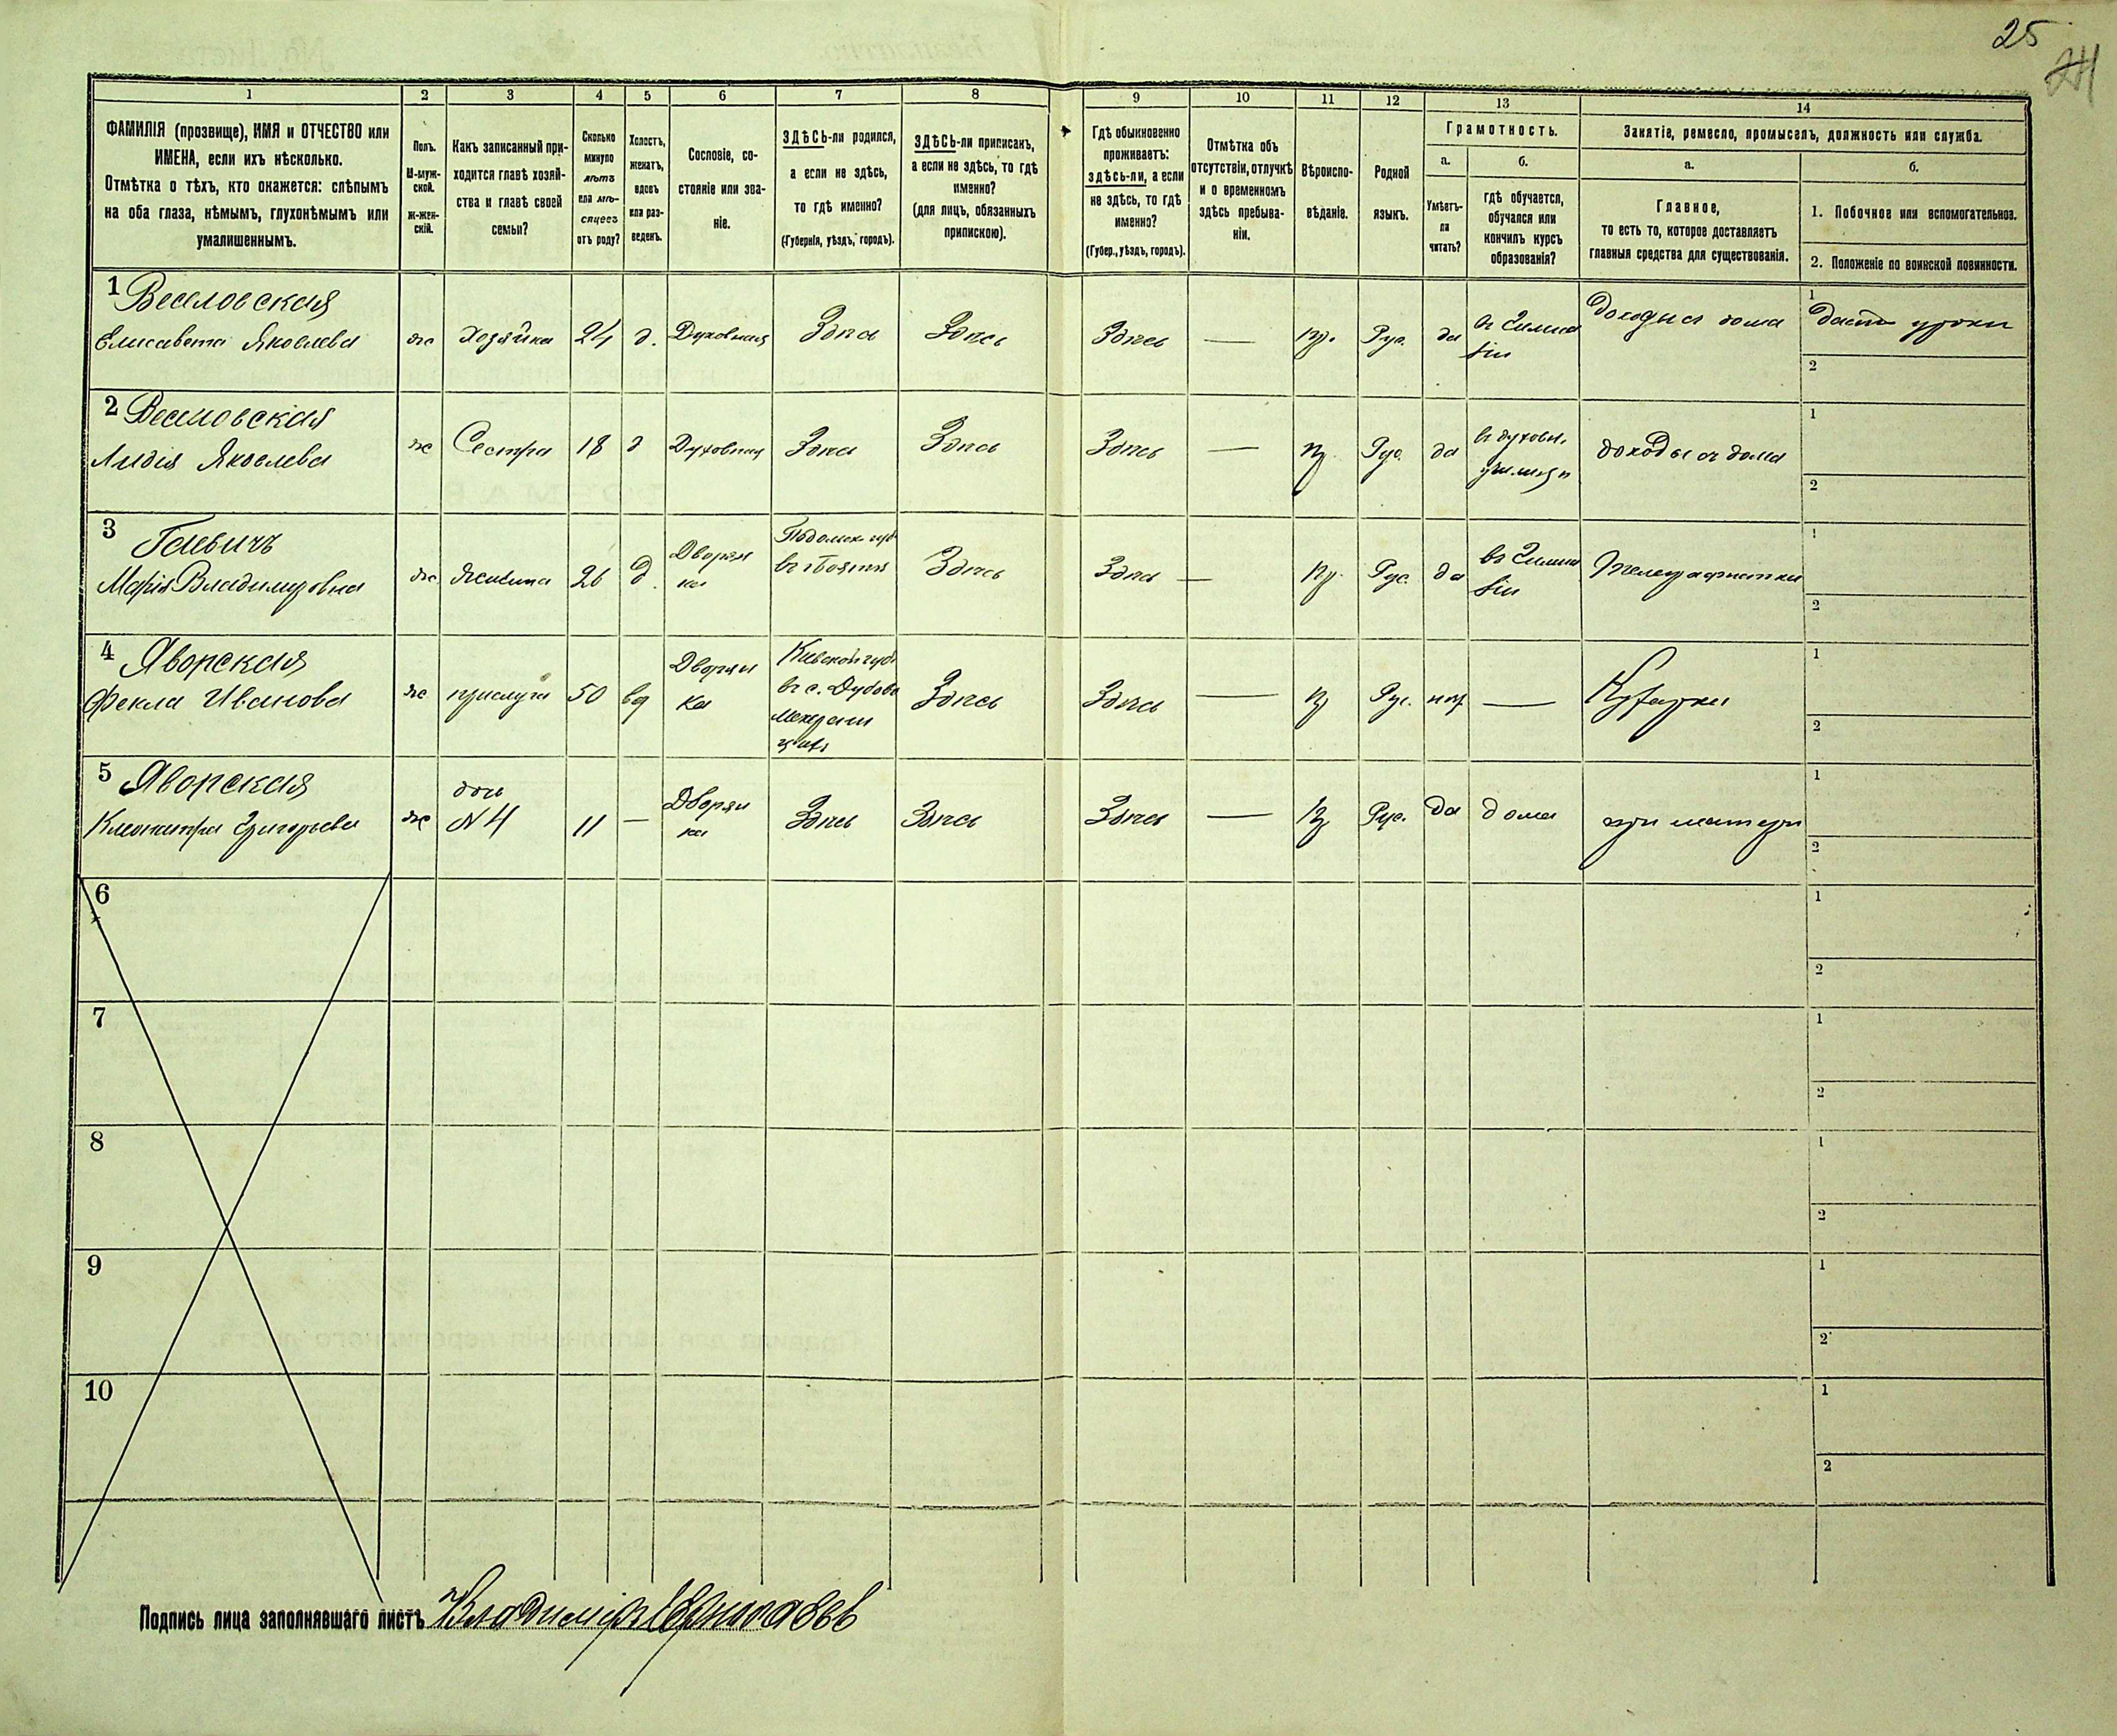 25
24
1
2
3
4
5
6
7
8
9
10
11
12
13
14
ФАМИЛІЯ (прозвище), ИМЯ и ОТЧЕСТВО или
ИМЕНА, если ихъ нѣсколько.
Отмѣтка о тѣхъ, кто окажется: слѣпымъ
на оба глаза, нѣмымъ, глухонѣмымъ или
умалишеннымъ.
Полъ.
М-муж-
ской.
Ж-жен-
скій.
Какъ записанный при-
ходится главѣ хозяй-
ства и главѣ своей
семьи?
Сколько
минуло
лѣтъ
или мѣ-
сяцевъ
отъ роду?
Холостъ,
женатъ,
вдовъ
или раз-
веденъ.
Сословіе, со-
стояніе или зва-
ніе.
ЗДѢСЬ-ли родился,
а если не здѣсь,
то гдѣ именно?
(Губернія, уѣздъ, городъ).
ЗДѢСЬ-ли приписанъ,
а если не здѣсь, то гдѣ
именно?
(для лицъ, обязанныхъ
припискою).
Гдѣ обыкновенно
проживаетъ:
здѣсь-ли, а если
не здѣсь, то гдѣ
именно?
(Губер., уѣздъ, городъ).
Отмѣтка объ
отсутствіи, отлучкѣ
и о временномъ
здѣсь пребыва-
ніи.
Вѣроиспо-
вѣданіе.
Родной
языкъ.
Грамотность.
а.
Умѣетъ-
ли
читать?
б.
гдѣ обучается,
обучался или
кончилъ курсъ
образованія?
Занятіе, ремесло, промыселъ, должность или служба.
а.
Главное,
то есть то, которое доставляетъ
главныя средства для существованія.
б.
1. Побочное или вспомогательное.
2. Положеніе по воинской повинности.
1 Веселовская
Елисавета Яковлева
ж
хозяйка
24
д.
Духовная
Здѣсь
Здѣсь
Здѣсь
—
пр.
Рус.
да
въ Гимна
зіи
доходы съ дома
1
даетъ уроки
2
2 Веселовская
Лидія Яковлева
ж
Сестра
18
д
Духовная
Здѣсь
Здѣсь
Здѣсь
—
пр.
Рус.
да
въ духовн.
училищѣ
доходы съ дома
1
2
3
Марія Владимировна
ж
26
д.
Дворян
ка
Подольск губ
Здѣсь
Здѣсь
—
пр.
Рус.
да
въ Гимна
зіи
Телеграфистка
1
2
4 Яворская
Фекла Иванова
ж
прислуга
50
вд
Дворян
ка
Кіевской губ
въ с. Дубова
Здѣсь
Здѣсь
—
пр
Рус.
нѣт
—
Кухарка
1
2
5 Яворская
Клеопатра Григорьева
ж
дочь
N 4
11
—
Дворян
ка
Здѣсь
Здѣсь
Здѣсь
—
пр
Рус.
да
дома
при матери
1
2
6
1
2
7
1
2
8
1
2
9
1
2
10
1
2
Подпись лица заполнявшаго листъ Владиміръ